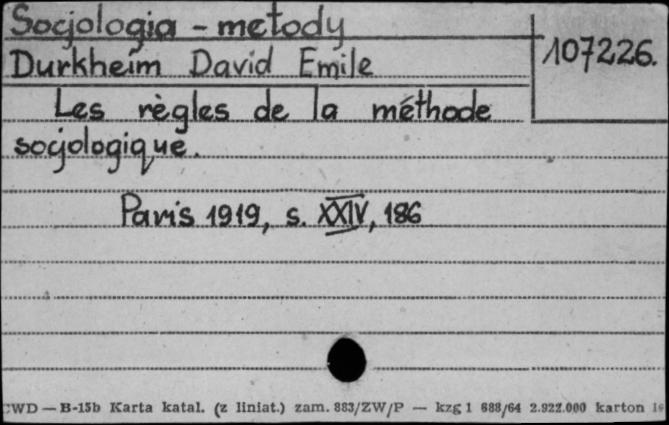 Socjologia - metody
107226.
Durkheim David Emile
Les règles de la méthode
socjologique.
Paris 1919, s. XXIV, 186
CWD — B-15b Karta katal. (z liniat.) zam. 883/ZW/P — kzg 1 688/64 2.922.000 karton